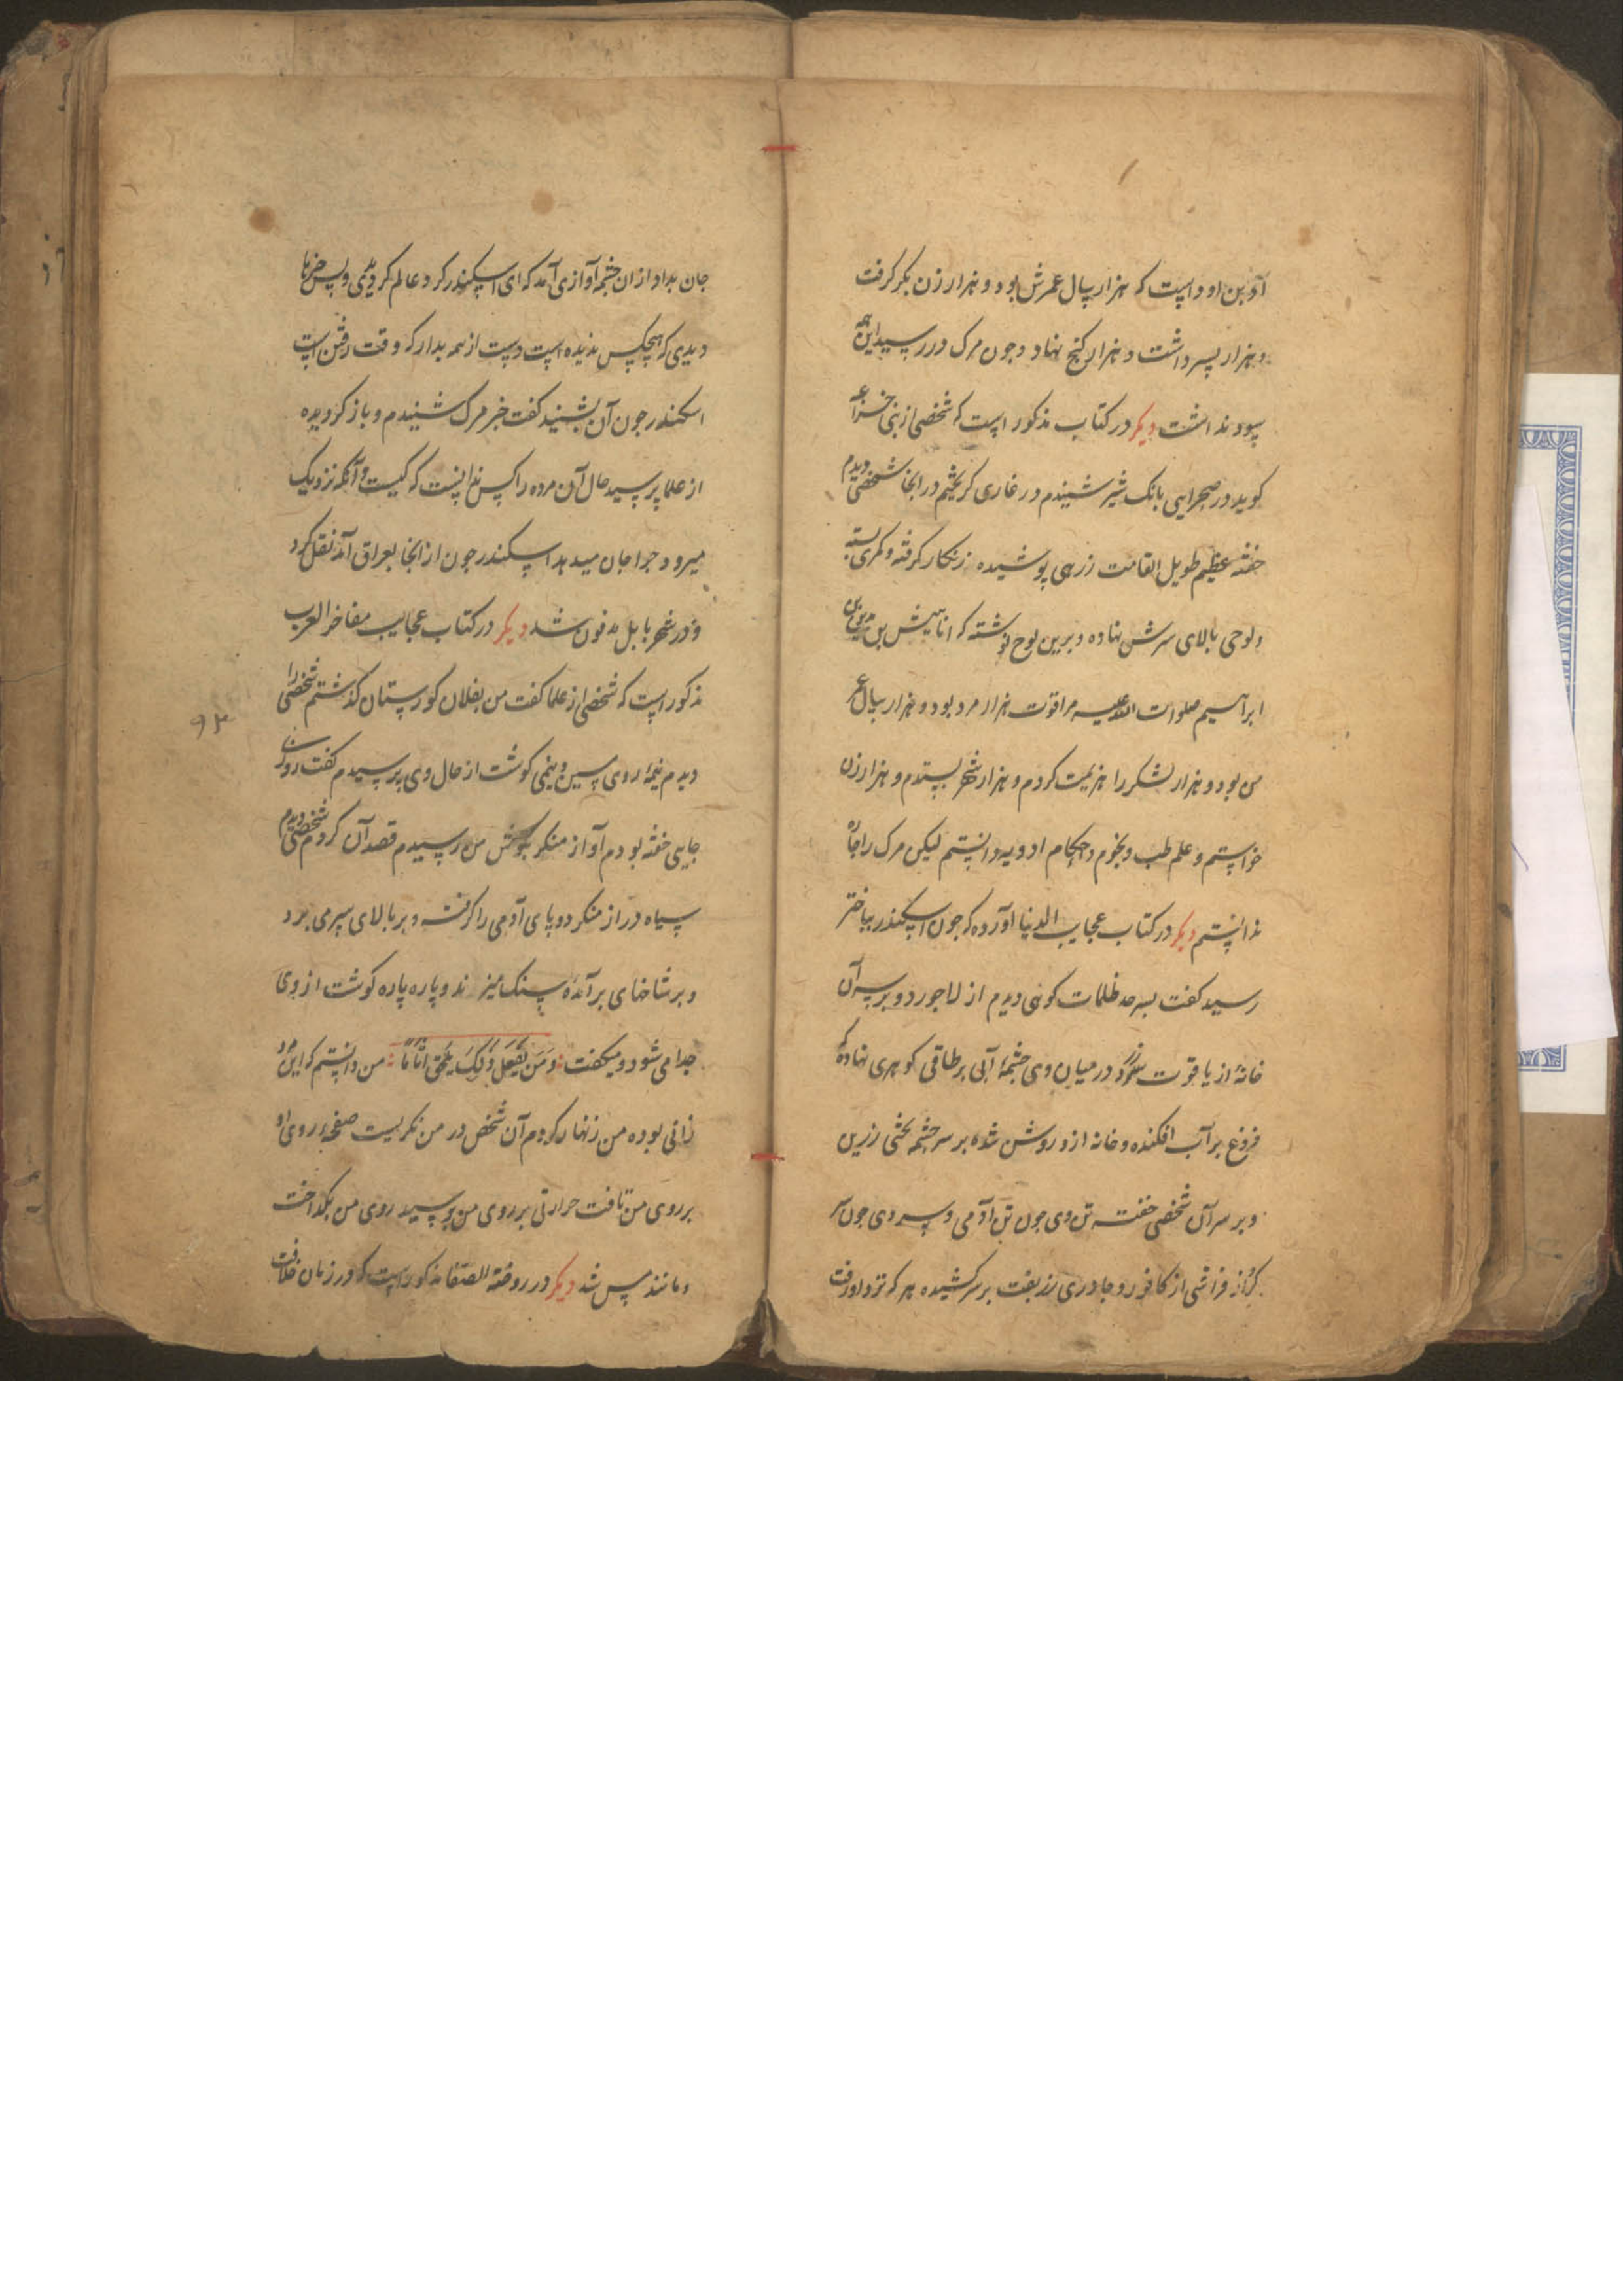 آد بن اود است که هزار سال عمرش بود و هزار زن بکر کرفت
و هزار پسر داشت و هزار کنج نهاد و چون مرک در رسید این همه
سود نداشت دیکر در کتاب مذکور است که شخصی از بنی خزاعه
کوید در صحرایی بانک شیر شنیدم در غاری کریختم در انجا شخصی دیدم
خفته عظیم طویل القامت زرهی پوشیده زنکار کرفته و کمری بسته
و لوحی بالای سرش نهاده و برین لوح نوشته که انا بن
ابراهیم صلوات الله علیه مرا قوت هزار مرد بود و هزار سال عمر
من بود و هزار لشکر را هزیمت کردم و هزار شهر بستدم و هزار زن
خواستم و علم طب و نجوم و احکام ادویه دانستم لیکن مرک را چاره
ندانستم دیکر در کتاب عجایب الدنیا آورده که چون اسکندر بباختر
رسید کفت بسرحد ظلمات کوهی دیدم از لاجورد و بر سر آن
خانهٔ از یاقوت و در میان وی چشمهٔ آبی بر طاقی کوهری نهاده که
فروغ بر آب افکنده و خانه ازو روشن شده بر سر چشمه تختی زرین
و بر سر آن شخصی خفته تن وی چون تن آدمی و سر وی چون سر
کراز فراشی از کافور و چادری زربفت بر سر کشیده هر که نزد او رفت
جان بداد از ان چشمه آوازی آمد که ای اسکندر کرد عالم کردیدی و بس چیزها
دیدی که هیچکس ندیده است دست از همه بدار که وقت رفتن است
اسکندر چون آن بشنید کفت خبر مرک شنیدم و باز کردیده
از علما پرسید حال آن مرده را کس ندانست که کیست و آنکه نزدیک
میرود چرا جان میدهد اسکندر چون از انجا بعراق آمد نقل کرد
و در شهر بابل مدفون شد دیکر در کتاب عجایب مفاخر العرب
مذکور است که شخصی از علما کفت من بفلان کورستان کذشتم شخصی را
دیدم نیمهٔ روی مسین و نیمی کوشت از حال وی پرسیدم کفت روزی
۹۳
جایی خفته بودم آواز منکر بکوش من رسید قصد آن کردم شخصی دیدم
سیاه دراز منکر دو پای آدمی را کرفته و بر بالای سر می برد
و بر شاخهای برآمدهٔ سنک میزند و پاره پاره کوشت از وی
جدا می شود و میکفت وَمَن يَفْعَل ذَلِكَ يَلْقَ اَثَامًا من دانستم که این مرد
زانی بوده من زنهار کردم آن شخص در من نکریست صفحهٔ روی او
بر روی من تافت حرارتی بر روی من رسید روی من بکداخت
و مانند مس شد دیکر در روضة الصفا مذکور است که در زمان خلافت